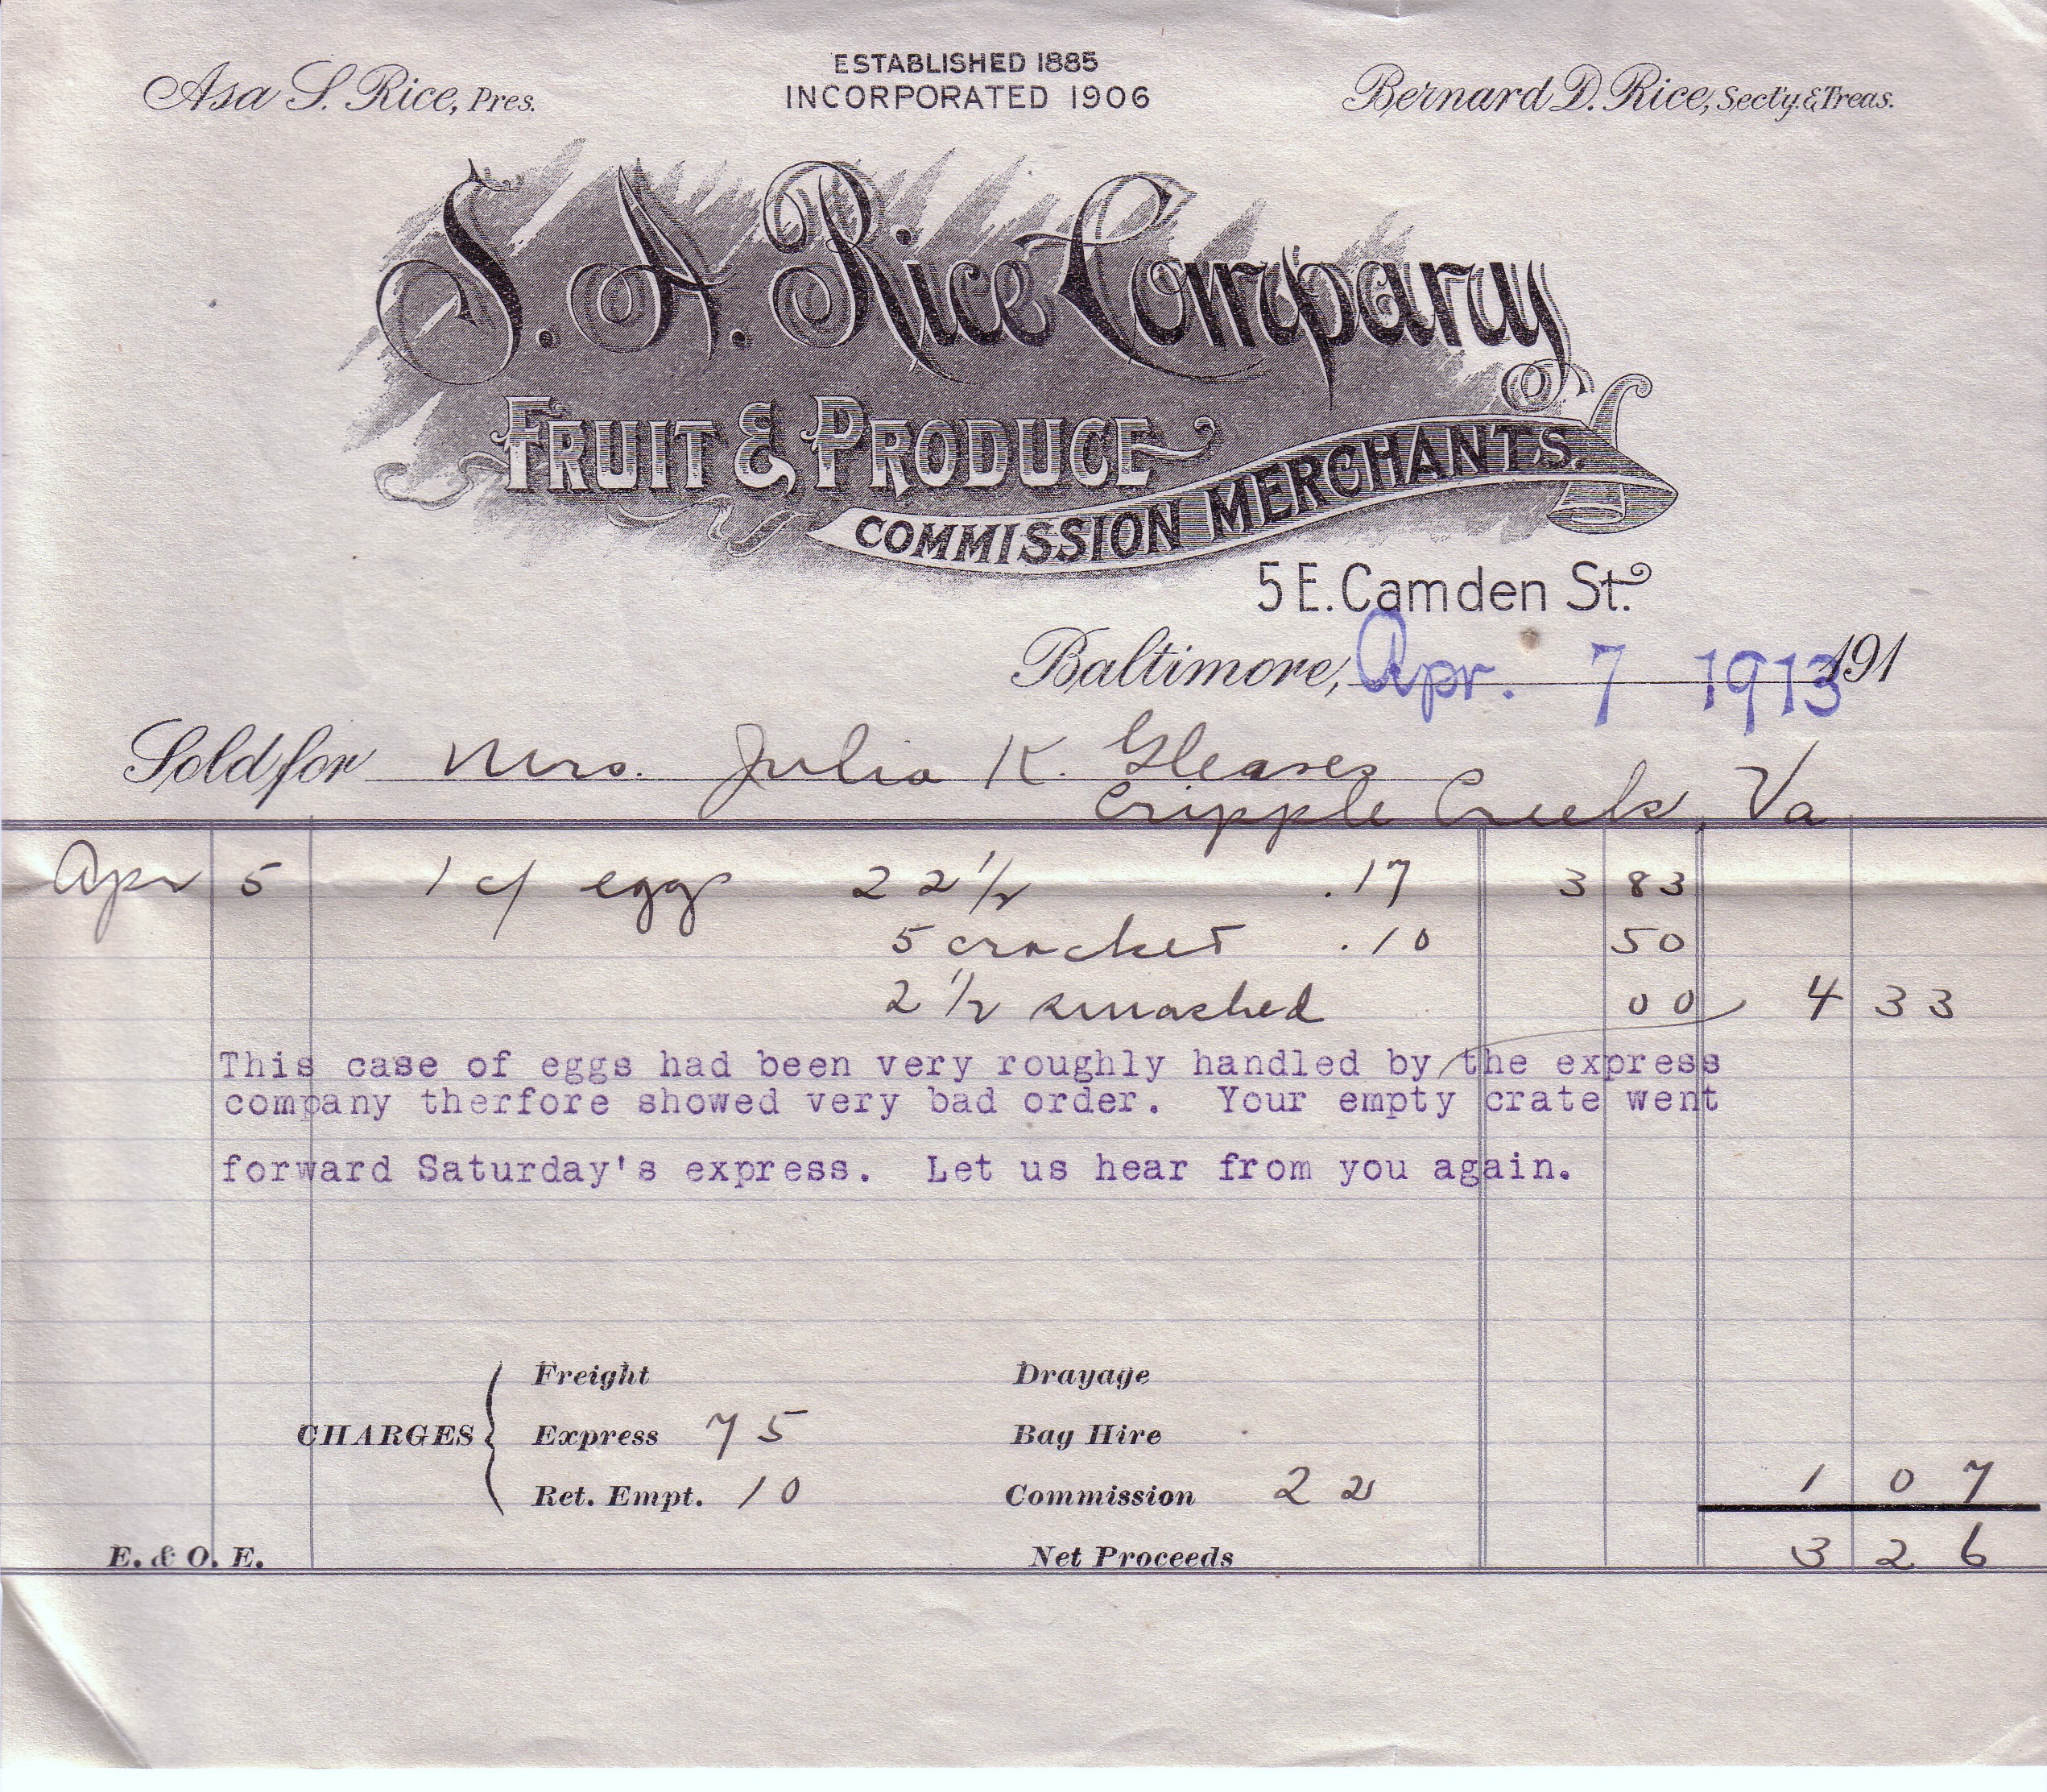 ESTABLISHED 1885
Asa S. Rice, Pres. INCORPORATED 1906 Bernard D. Rice, Sect'y. & Treas.
S. A. Rice Company
FRUIT & PRODUCE
COMMISSION MERCHANTS.
5 E. Camden St.
Baltimore, Apr. 7 1913 191
Sold for Mrs. Julia K. Gleaves
Cripple Creek, Va
Apr 5 1 c/ eggs 22 1/2 .17 3 83
5 cracket .10 50
2 1/2 smashed 00 4 33
This case of eggs had been very roughly handled by the express
company therfore showed very bad order. Your empty crate went
forward Saturday's express. Let us hear from you again.
Freight Drayage
CHARGES Express 75 Bag Hire
Ret. Empt. 10 Commission 22 1 07
E. & O. E. Net Proceeds 3 26